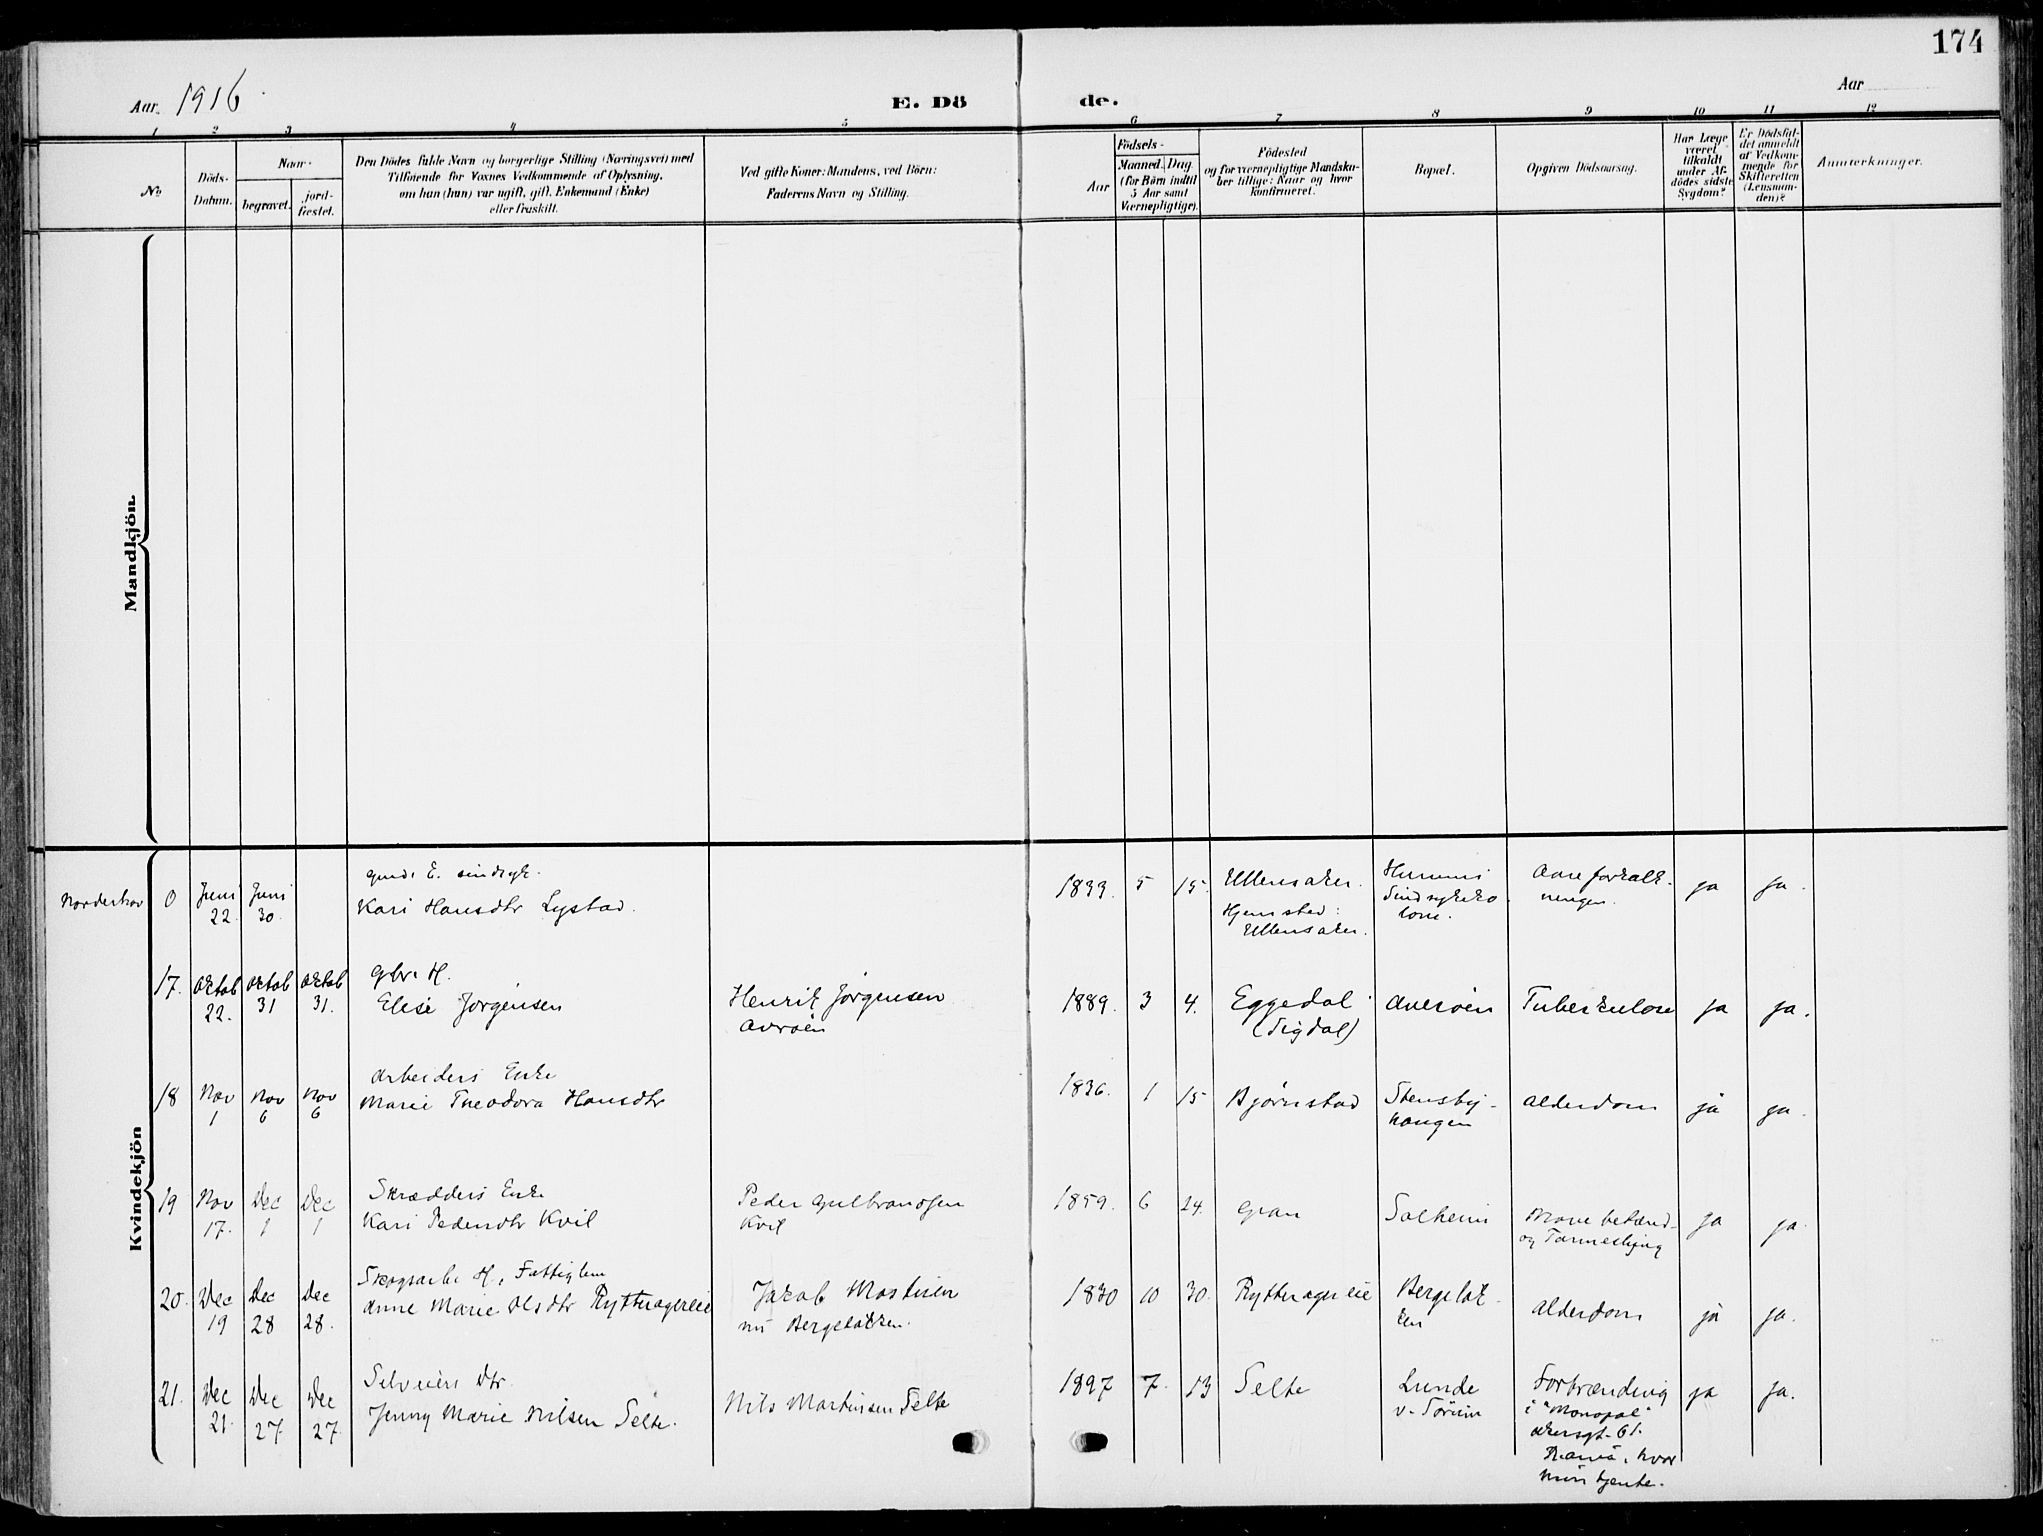 174
Aar 1916
E. Dö
de.
Aar
1 2 3 4 5 6 7 8 9 10 11 12
No
Döds-
Datum.
Naar
begravet.
jord-
fæstet.
Den Dödes fulde Navn og borgerlige Stilling (Næringsvei) med
Tilföiende for Voxnes Vedkommende af Oplysning,
om han (hun) var ugift, gift, Enkemand (Enke)
eller fraskilt.
Ved gifte Koner: Mandens, ved Börn:
Faderens Navn og Stilling.
Födsels-
Aar
Maaned. Dag.
(for Börn indtil
5 Aar samt
Værnepligtige).
Födested
og for værnepligtige Mandska-
ber tillige: Naar og hvor
konfirmeret.
Bopæl.
Opgiven Dödsaarsag.
Har Læge
været
tilkaldt
under Af-
dödes sidste
Sygdom?
Er Dödsfal-
det anmeldt
af Vedkom-
mende for
Skifteretten
(Lensman-
den)?
Anmærkninger.
Mandkjön.
Kvindekjön
Norderhov 0 Juni 22. Juni 30.
E. sindsyk.
Kari Hansdtr Lystad.
1833. 5 15. Ullensaker.
Hjemsted:
Ullensaker.
Sindsykeko
loni.
Aareforkalk-
ningen.
ja ja.
17. Oktob 22. Oktob 31 Oktob 31.
Gbr. H.
Elise Jørgensen
Henrik Jørgensen
Avrøen
1889. 3 4. Eggedal
(Sigdal)
Averøen Tuberkulose ja ja.
18 Nov 1 Nov 6 Nov 6
Arbeiders Enke
Marie Theodora Hansdtr
1836. 1 15 Bjørnstad
Stensby-
haugen
Alderdom ja ja.
19 Nov 17. Dec 1 Dec 1
Skrædders Enke
Kari Pedersdtr Kvil
Peder Gulbrandsen
Kvil
1859. 6 24. Gran Solheim
Mavebetænd-
og Tarmeslyng
ja ja.
20. Dec 19 Dec 28 Dec 28.
Skogsarb. H., Fattiglem
Anne Marie Olsdtr Rytteragereie
Jakob Mostuen
nu Bergeløkken.
1830 10 30. Rytteragereie
Bergeløk-
ken
Alderdom ja ja.
21. Dec 21. Dec 27. Dec 27.
Selveiers Dtr.
Jenny Marie Nilsen Selte.
Nils Martinsen Selte
1897 7. 13 Selte
Lunde
v. Sørum
Forbrænding
i "Monopol"
Akersgt. 61.
Kania, hvor
hun tjente.
ja ja.